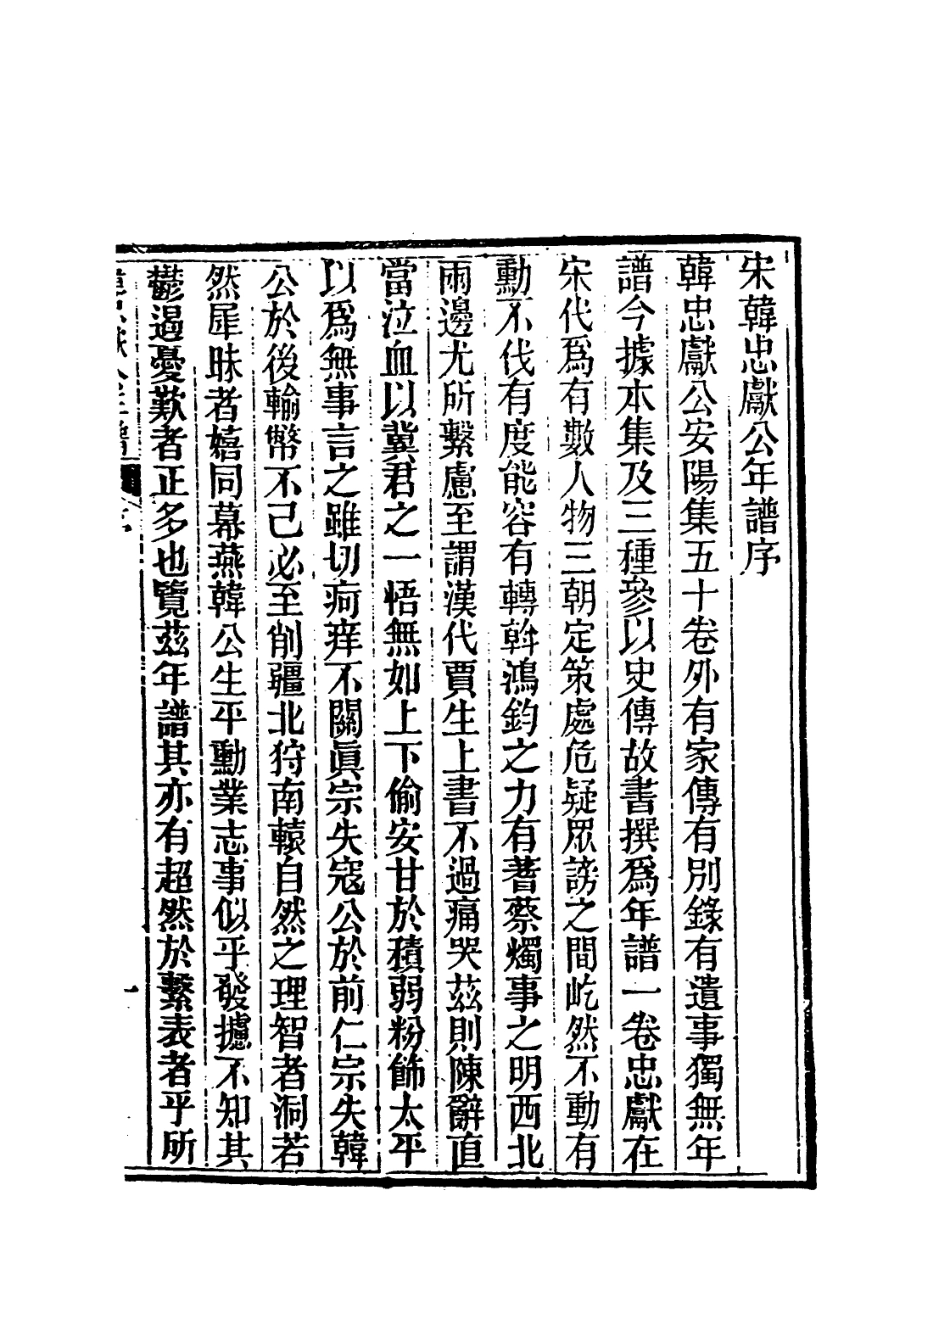 宋韓忠獻公年譜序
韓忠獻公安陽集五十卷外有家傳有別錄有遺事獨無年
譜今據本集及三種參以史傳故書撰爲年譜一卷忠獻在
宋代爲有數人物三朝定策處危疑眾謗之間屹然不動有
勳不伐有度能容有轉斡鴻鈞之力有蓍蔡燭事之明西北
兩邊尤所繫慮至謂漢代賈生上書不過痛哭茲則陳辭直
當泣血以冀君之一悟無如上下偷安甘於積弱粉飾太平
以爲無事言之雖切疴痒不關眞宗失寇公於前仁宗失韓
公於後輸幣不已必至削疆北狩南轅自然之理智者洞若
然犀昧者嬉同幕燕韓公生平勳業志事似乎發攄不知其
鬱遏憂歎者正多也覽茲年譜其亦有超然於繫表者乎所
一